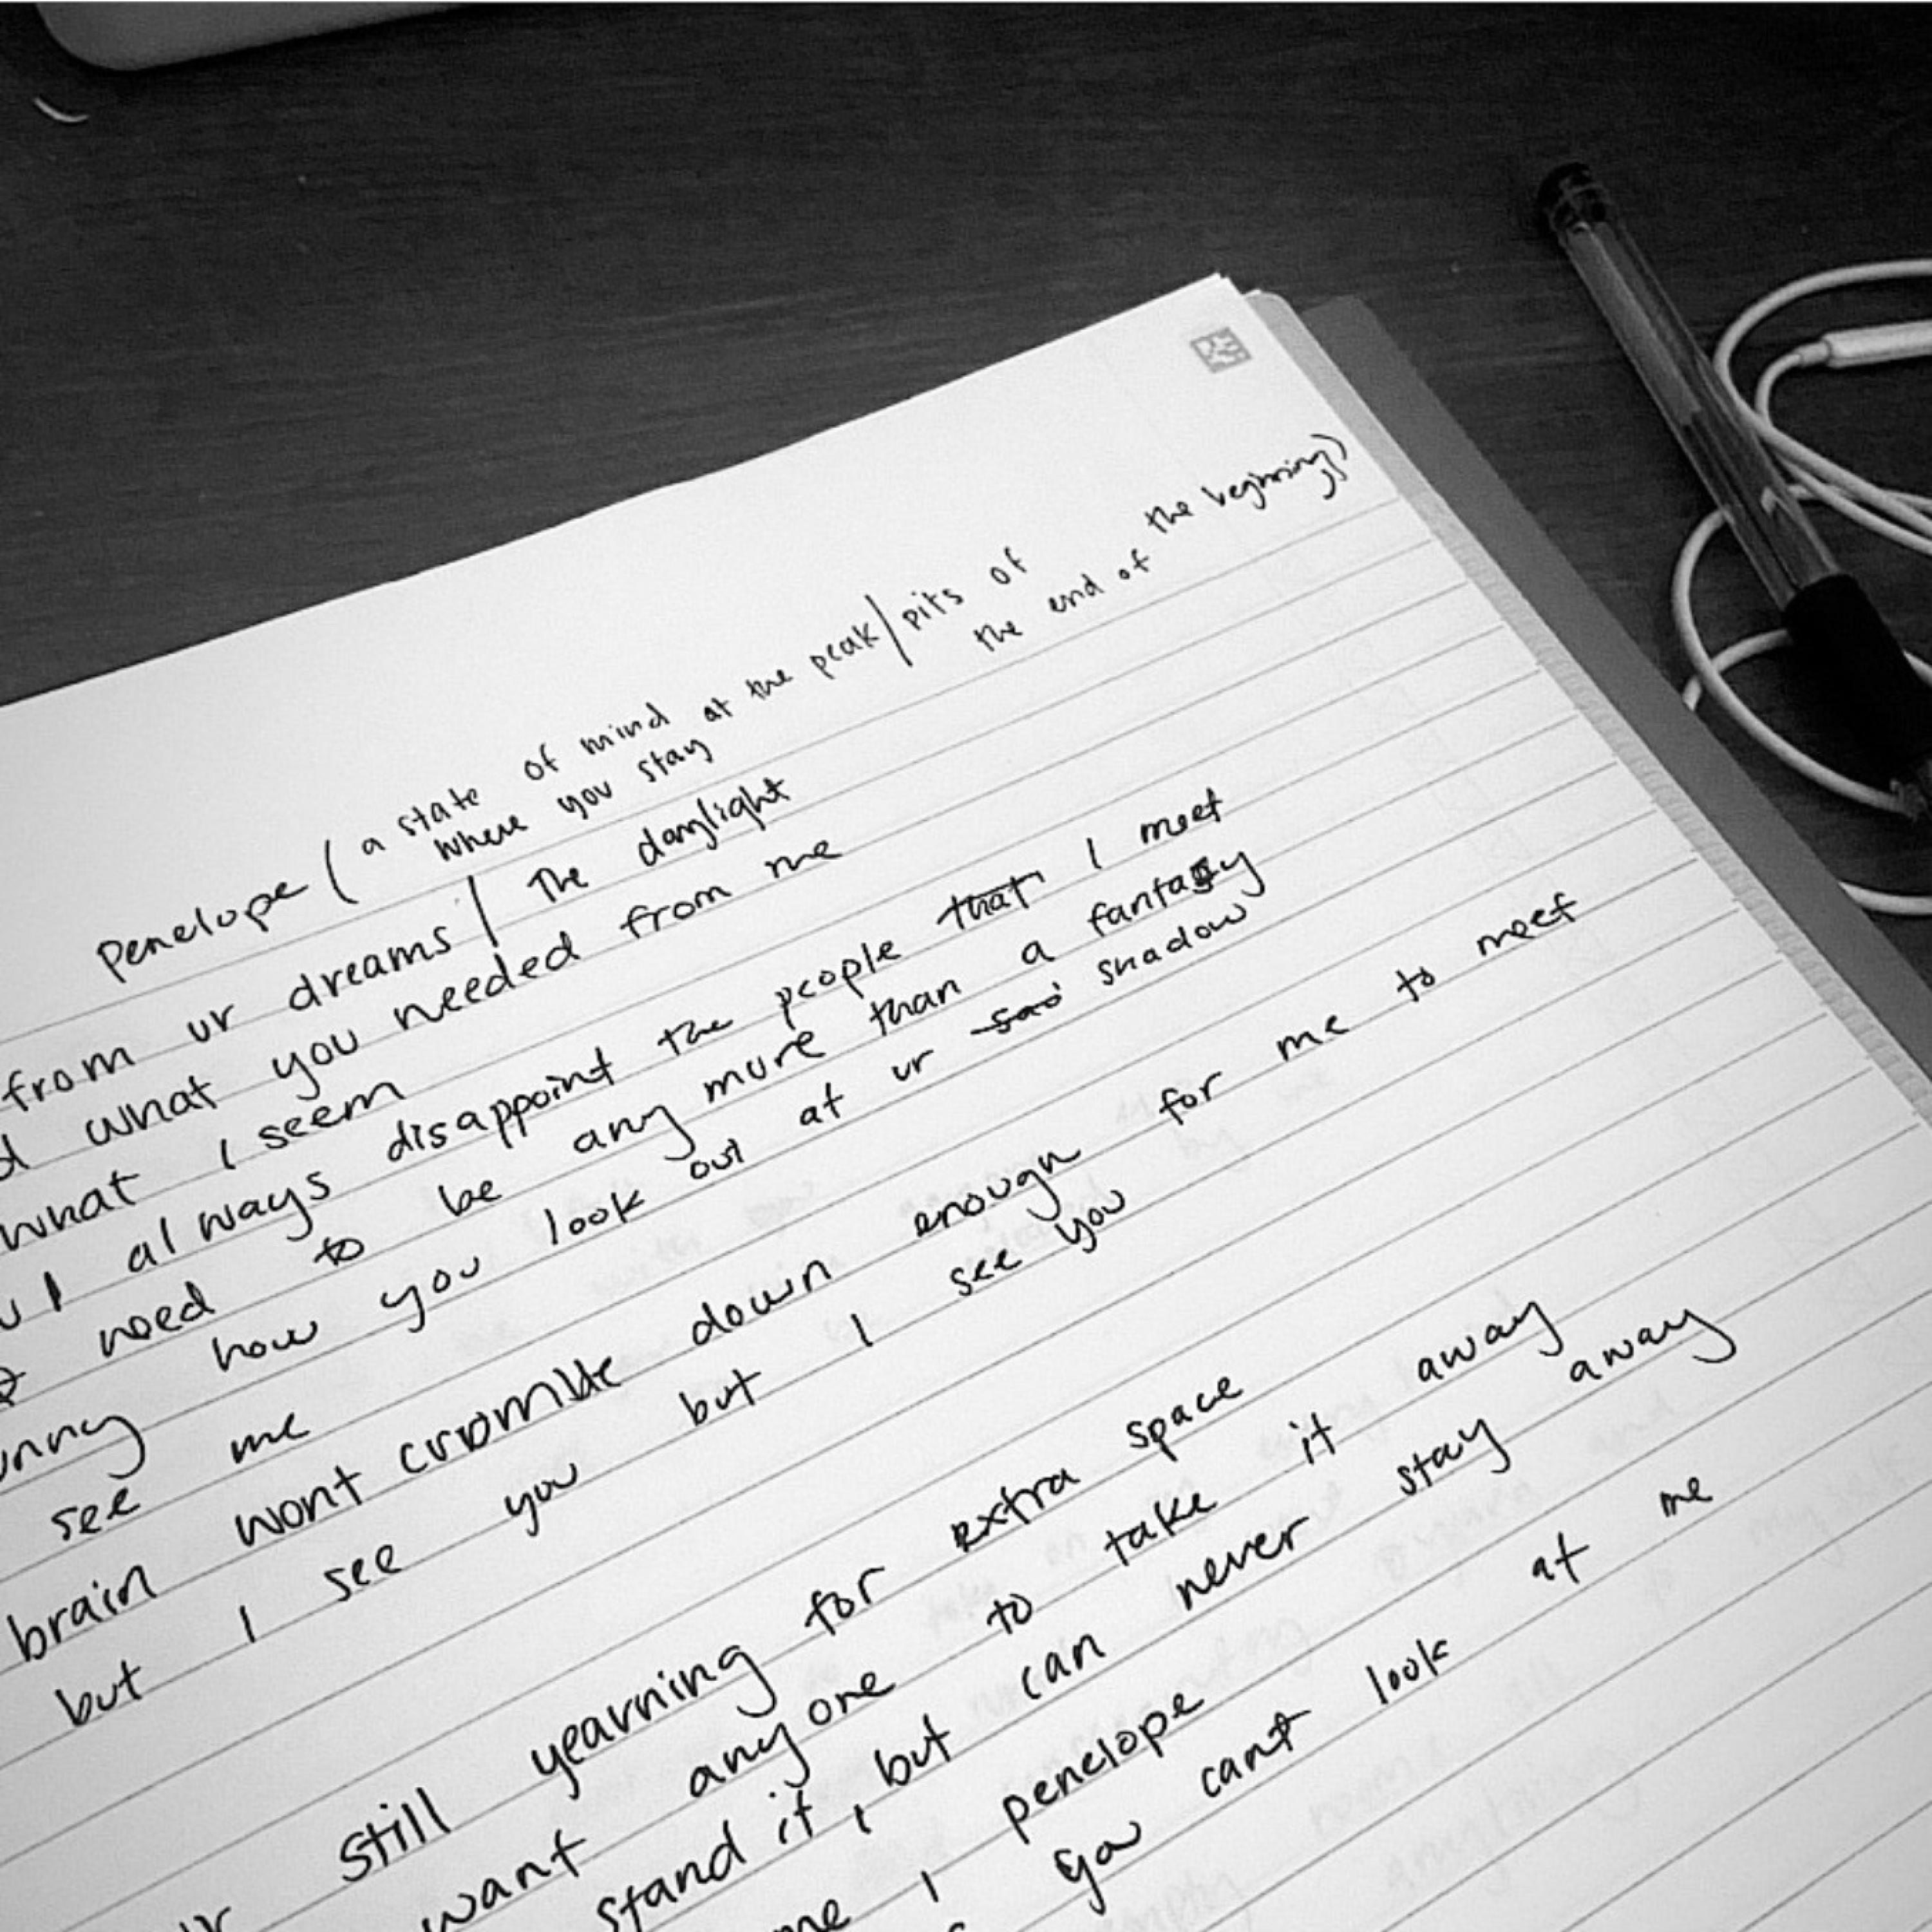 penelope ( a state of mind at the peak/pits of
where you stay the end of the beginning)
from ur dreams / The daylight
what you needed from me
what I seem
I always disappoint the people that I meet
need to be any more than a fantasy
how you look out at ur sad shadow
see me
brain wont crumble down enough for me to meet
but I see you but I see you
still yearning for extra space
want anyone to take it away
stand it, but can never stay away
me, penelope
you cant look at me